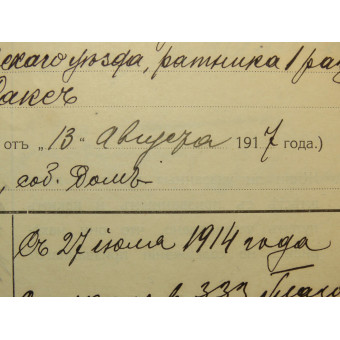 скаго уѣзда, ратника 1 раз
Даксъ
отъ „13“ Августа 1917 года.)
, соб. Домъ
Съ 27 іюля 1914 года
в 333